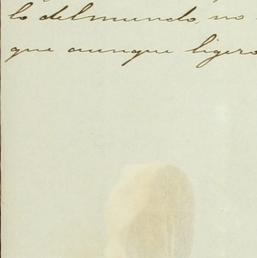 lo del mundo, no
que aunque ligero